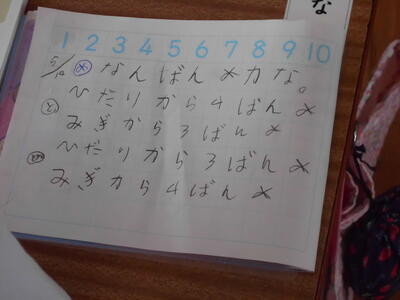 な
1 2 3 4 5 6 7 8 9 10
5/10 め なんばんめかな。
ひだりから4ばんめ
みぎから3ばんめ
ひだりから3ばんめ
みぎから4ばんめ